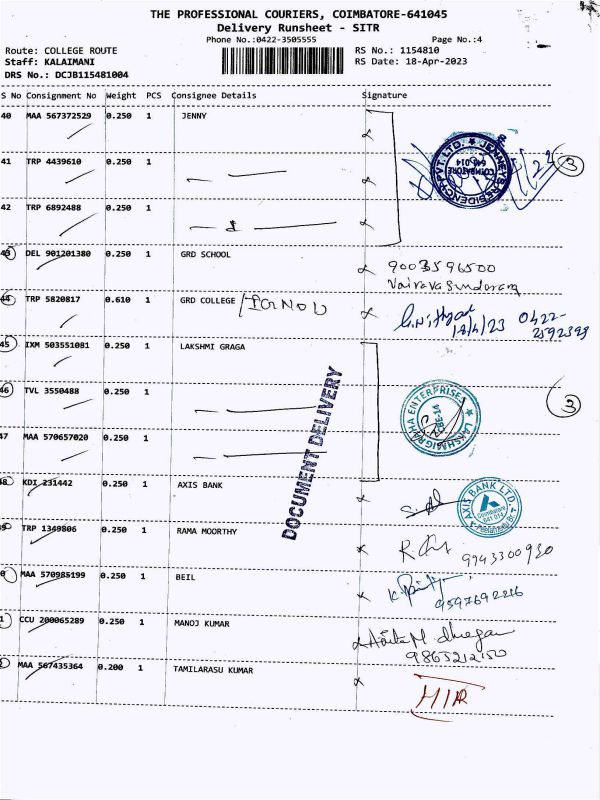 THE PROFESSIONAL COURIERS, COIMBATORE-641045
Delivery Runsheet - SITR
Phone No.:0422-3505555 Page No.:4
Route: COLLEGE ROUTE RS No.: 1154810
Staff: KALAIMANI RS Date: 18-Apr-2023
DRS No.: DCJB115481004
S No Consignment No Weight PCS Consignee Details Signature
40 MAA 567372529 0.250 1 JENNY
JENNEYS RESIDENCY PVT. LTD. COIMBATORE 641 014
3
41 TRP 4439610 0.250 1
42 TRP 6892488 0.250 1
43 DEL 901201380 0.250 1 GRD SCHOOL 9003596500
Vairavasundaram
44 TRP 5820817 0.610 1 GRD COLLEGE
18/4/23 0422-
2592399
45 IXM 503551081 0.250 1 LAKSHMI GRAGA
46 TVL 3550488 0.250 1
LAKSHMIGRAHA ENTERPRISES CBE-14
3
47 MAA 570657020 0.250 1
DOCUMENT DELIVERY
48 KDI 231442 0.250 1 AXIS BANK
AXIS BANK LTD. Coimbatore 641 014
TRP 1349806 0.250 1 RAMA MOORTHY
9943300930
MAA 570985199 0.250 1 BEIL
9597692216
CCU 200065289 0.250 1 MANOJ KUMAR
9865212150
MAA 567435364 0.200 1 TAMILARASU KUMAR